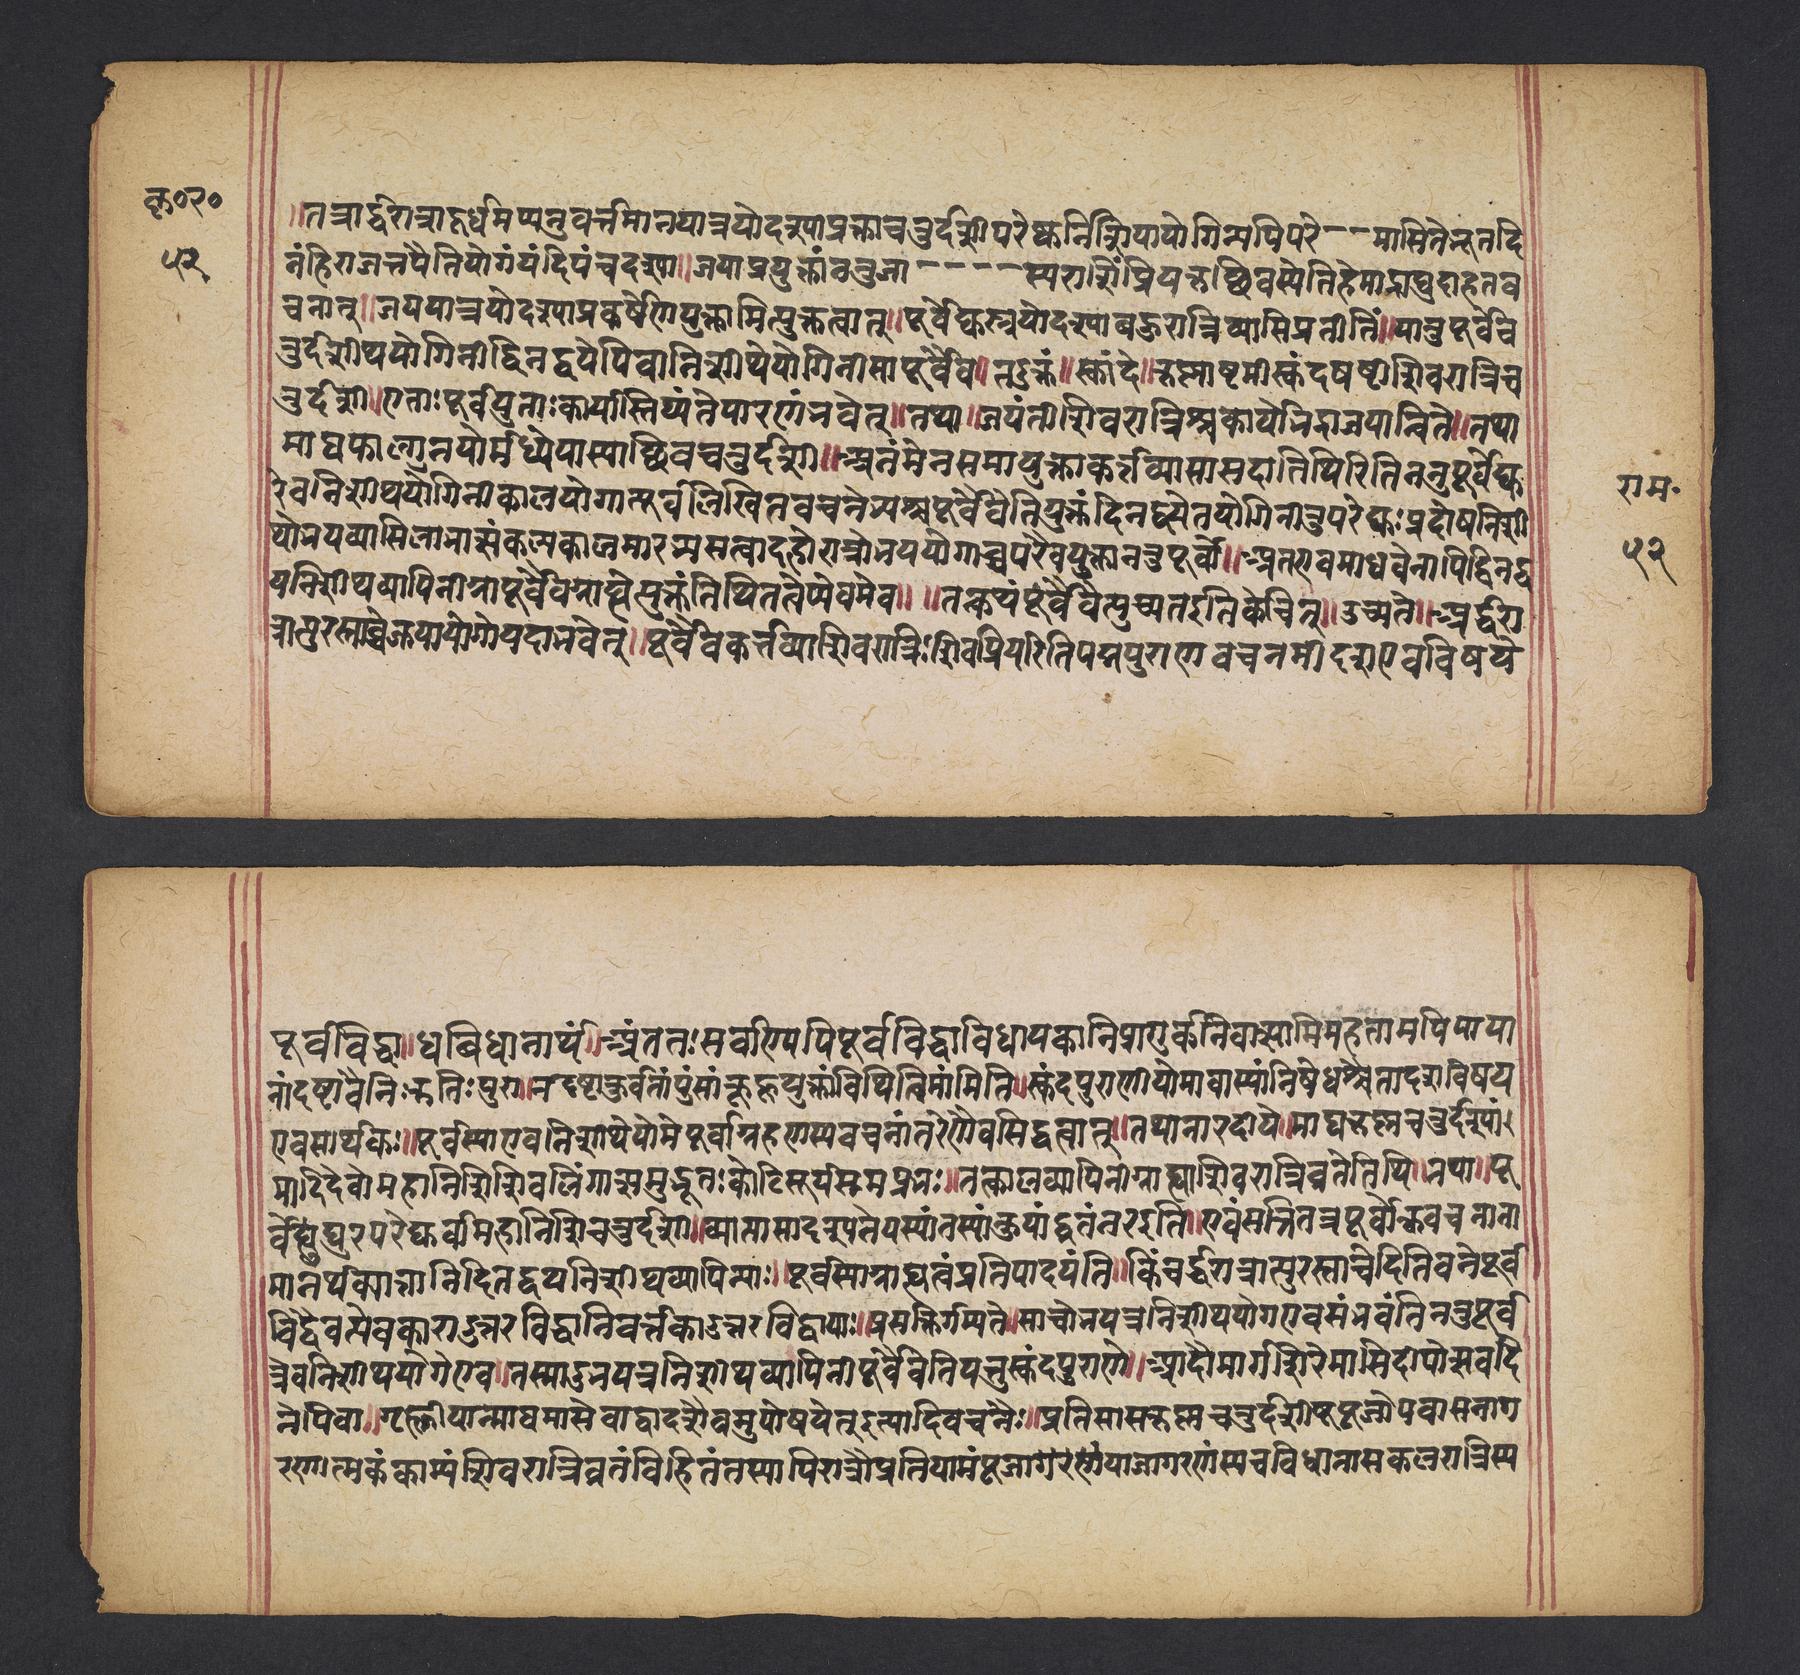 कृ०र०
५२
॥तत्रार्द्धरात्रादूर्ध्वमप्यनुवर्त्तमानयात्रयोदश्याप्रक्ताचतुर्दशीपरेह्यनिशिायायोगिन्यपिपरे-- मासितेनूतदि
नंहिराजन्नपैतियोगंयदिपंचदश्या॥जयाप्रयुक्तांवनुजा ---- स्यरात्रिंप्रियकृच्छिवस्येतिहेमाद्र्याद्युदाहतव
चनात्॥जययात्रयोदश्याप्रकर्षेणयुक्तामित्युक्तत्वात्॥पूर्वेह्यस्त्रयोदश्याबहुरात्रिव्याप्तिप्रतीतिं॥यातुपूर्वेचे
तुर्दशीथयोगिनीदिनद्वयेपिवानिशीथेयोगिनीसापूर्वैव॥तदुक्तं॥स्कांदे॥कृष्णाष्टमीस्कंदषष्टीशिवरात्रिच
तुर्दशी॥एताःपूर्वयुताःकार्यास्तिथ्यंतेपारणंभवेत्॥तथा॥जयंतीशिवरात्रिश्चकार्येभद्राजयान्विते॥तथा
माघफाल्गुनयोर्मध्येयास्याच्छिवचतुर्दशी॥अनंगेनसमायुक्ताकर्त्तव्यासासदातिथिरितिननुपूर्वेह्य
रेवनिशीथयोगिनीकालयोगात्पूर्वलिखितवचनेभ्यश्चपूर्वैवेतियुक्तंदिनद्वयेतयोगिनीतुपरेह्यःप्रदोषनिशी
थोभयव्याप्तिलाभात्संकल्पकालमारभ्यसत्वादहोरात्रोभययोगाच्चपरैवयुक्तानतुपूर्वा॥अतएवमाधवेनापिदिनद्व
यनिशीथव्यापिनीग्रापूर्वैवग्राह्येत्युक्तंतिथितत्वेप्येवमेव॥ ॥तत्कथंपूर्वैवेत्युच्यतइतिकेचित्॥उच्यते॥अर्द्धरा
त्रात्पुरस्ताच्चेज्जयायोगोयदाभवेत्॥पूर्वैवकर्त्तव्याशिवरात्रिःशिवप्रियरितिपद्मपुराणवचनमीदशएवविषये
राम॰
५२
पूर्वविद्धा॥धविधानार्थं॥अंततःसर्वाण्यपिपूर्वविद्धाविधायकानिप्रागुक्तनिवाक्यामिमहतामपिपापा
नांदष्टावैनिःकृतिःपुरा॥नदृष्टाकुर्वतांपुंसांकुहूयुक्तांविथिंत्विमांमिति॥स्कंदपुराणीयोमावास्यांनिषेधश्चैतादशविषय
एवसार्थकः॥पूर्वस्याएवनिशीथेयोमेपूर्वाग्रहणस्यवचनांतरेणैवसिद्धत्वात्॥तथानारदीये॥माघकृष्णचतुर्दश्यां।
मादिदेवोमहानिशिशिवलिंगात्समुद्भूतःकोटिसूर्यसमप्रभः॥तत्कालव्यापिनीग्राह्याशिवरात्रिव्रतेतिथि॥तथा॥पू
र्वेद्युवुरपरेह्यर्वामहानिशिचतुर्दशी॥व्याप्तासादश्यतेयस्यांतस्यांकुर्याद्व्रतंनरइति॥एवंसतितत्रपूर्वोक्तवचनाना
मानर्थक्यात्तानिदिनद्वयनिशीथव्यापिन्याः॥पूर्वस्याग्राह्यत्वंप्रतिपादयंति॥किंचार्द्धरात्रात्पुरस्ताच्चेदितिवचनेपूर्व
विद्धैवत्येवकाराउत्तरविद्धानिवर्त्तकाउत्तरविद्धायाः॥प्रसक्तिर्गम्यते॥साचोभयत्रनिशीथयोगएवसंभवंतिनतुपूर्व
त्रैवनिशीथयोगेएव॥तस्मादुभयत्रनिशीथव्यापिनीपूर्वैवेतियत्तुस्कंदपुराणे॥आदौमार्गशिरेमासिदीपोत्सवदि
नेपिवा॥गृह्णीयान्माघमासेवाद्वादशैवमुपोषयेत्इत्यादिवचनैः॥प्रतिमासकृष्णचतुर्दशीषुपूजोपवासजाग
रणात्मकंकाम्यंशिवरात्रिव्रतंविहितंतस्यापिरात्रौप्रतियामंपूजाजागरणंयाजागरणंस्यचविधानात्सकलरात्रिस्य